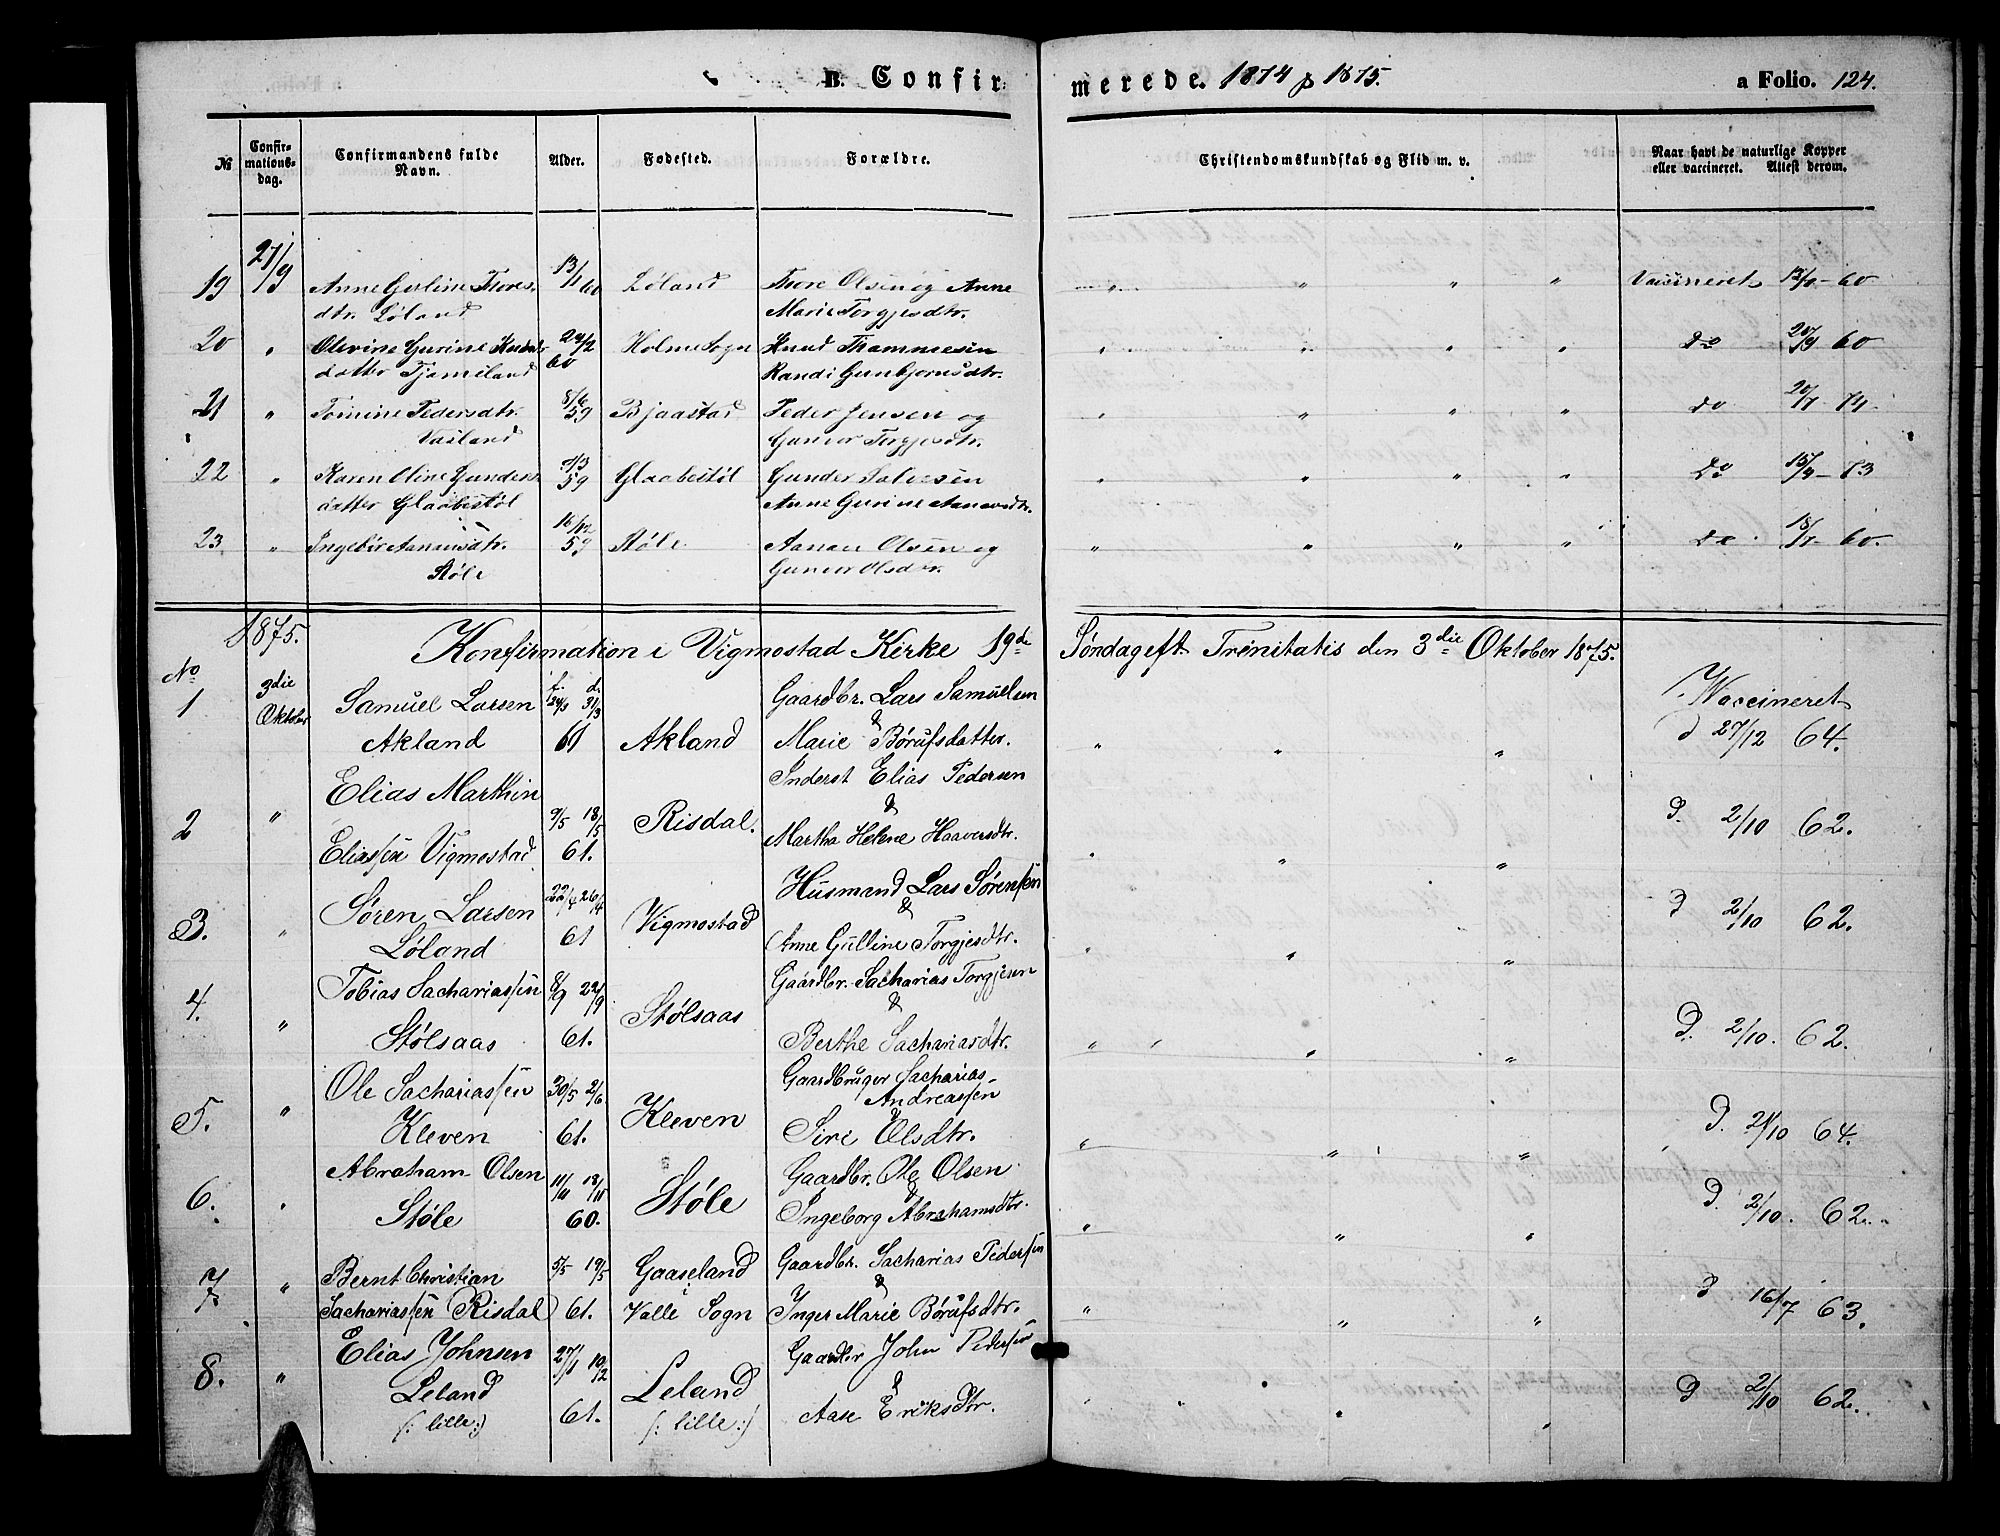 B. Confirmerede. 1874 & 1875. a Folio. 124.
№ Confirmationsdag. Confirmandens fulde Navn. Alder. Fødested. Forældre. Christendomskundskab og Flid m. v. Naar havt de naturlige Kopper eller vaccineret. Attest derom.
27/9
19 Anne Gurline Thores- 13/1 60 Løland Thore Olsen og Anne " " " " Vaccineret 13/9 - 60
dtr. Løland Marie Torgjesdtr.
20 " Olevine Gurine Knuds- 24/2 Holme Sogn Knud Thommesen " " " " do 20/9 60
datter Tjomsland 60 Randi Gunbjørnsdtr.
21 " Tomine Pedersdtr. 8/6 59 Bjaastad Peder Jensen og " " " " do 20/7 - 74.
Vasland Gunvor Torgjesdtr.
22 " Karen Oline Gunders- 7/3 59 Glaabestøl Gunder Salvesen " " " " do 15/9 - 73
datter Glaabestøl Anne Gurine Aanensdtr.
23. " Ingebor Aanensdtr. 16/12 59 Støle Aanen Olsen og " " " " do 18/7 - 60.
Støle Gunvor Olsdtr.
1875. Konfirmation i Vigmostad Kirke 19de Søndag eft. Trinitatis den 3die Oktober 1875.
No
1 3die Samuel Larsen f. 24/3 d. 31/3 Gaardbr. Lars Samuelsen Vaccineret
Oktober Akland 61 Akland & Marie Børufsdatter. " " " d 27/12 64.
Elias Marthin Inderst Elias Pedersen
2 " 9/5 18/5 Risdal. & D. 2/10 62.
Eliassen Vigmostad 61. Martha Helene Haaversdtr. " " "
Søren Larsen 22/4 26/4 Husmand Lars Sørensen
3. " Løland 61 Vigmostad & Anne Gulline Torgjesdtr. " " " D 2/10 62.
Tobias Sachariassen 8/9 22/9 Gaardbr. Sacharias Torgjesen
4. " Stølsaas 61. Stølsaas & Berthe Sachariasdtr. " " " D. 2/10. 62.
Ole Sachariassen 30/5 2/6 Gaardbruger Sacharias Andreassen
5. " Kleven 61. Kleven & Siri Olsdtr. " " " D. 21/10 64.
Abraham Olsen 11/11 18/11 Gaardbr. Ole Olsen
6. " Støle 60. Støle & Ingeborg Abrahamsdtr. " " " D. 2/10. 62.
Bernt Christian 5/5 19/5 Gaaseland Gaardbr. Sacharias Pedersen
7. " Sachariassen Risdal 61. i Valle Sogn & Inger Marie Børufsdtr. " " " D 16/7 63.
Elias Johnsen 27/1 10/2 Gaardbr John Pedersen
8. " Leland 61. Leland & Aase Eriksdtr. " " " D 2/10 62.
(: lille :) (: lille :)